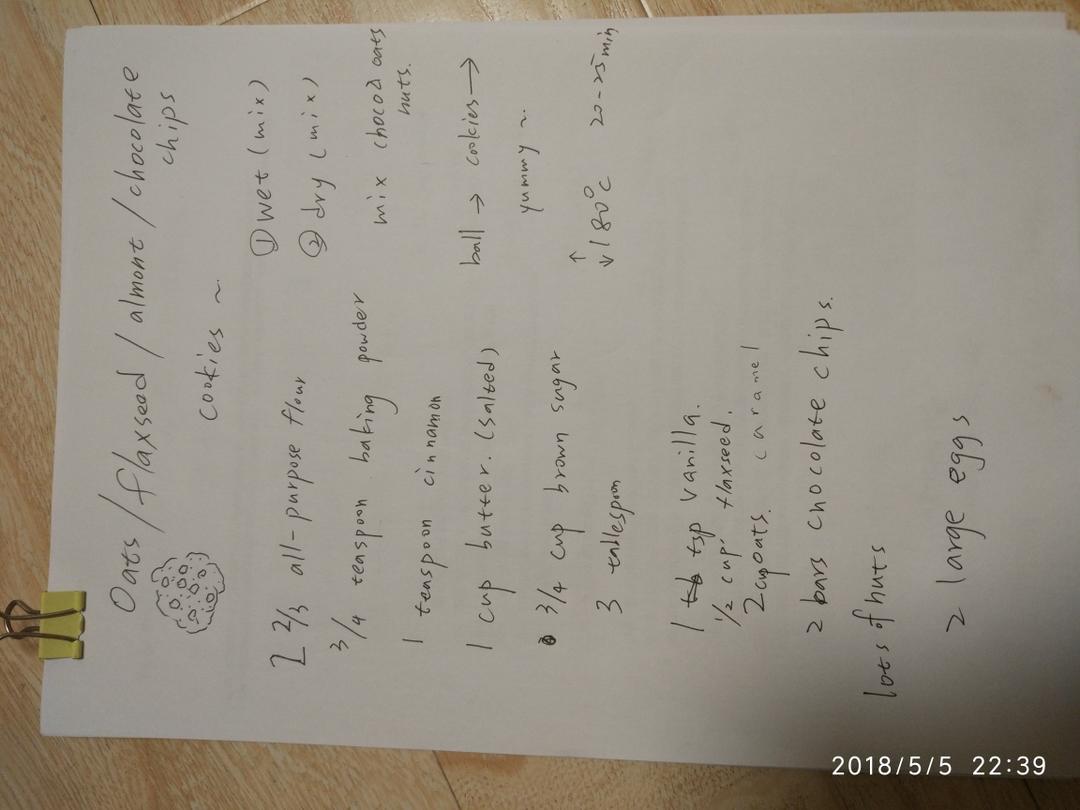 Oats / flaxseed / almont / chocolate
chips
cookies ~
2 2/3 all-purpose flour
3/4 teaspoon baking powder
1 teaspoon cinnamon
1 cup butter. (salted)
3/4 cup brown sugar
3 tablespoon
1 tsp vanilla.
1/2 cup flaxseed.
2 cup oats. caramel
2 bars chocolate chips.
lots of nuts
2 large eggs
① wet (mix)
② dry (mix)
mix choco oats
nuts.
ball → cookies →
yummy ~
↑↓ 180°C 20-25min
2018/5/5 22:39